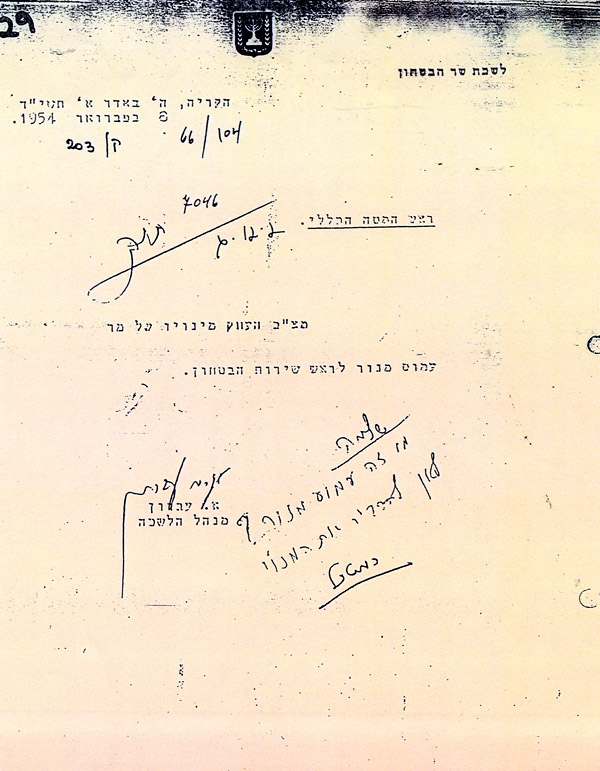 29
לשכת שר הבטחון
הקריה, ה' באדר א' תשי"ד
8 בפברואר 1954.
66/104
ק/203
7046
תיק
ראש המטה הכללי.
מצ"ב העתק מינויו של מר
עמוס מנור לראש שירות הבטחון.
שלמה
מי זה עמוס מנור
את המנוי
א. עברון
מנהל הלשכה